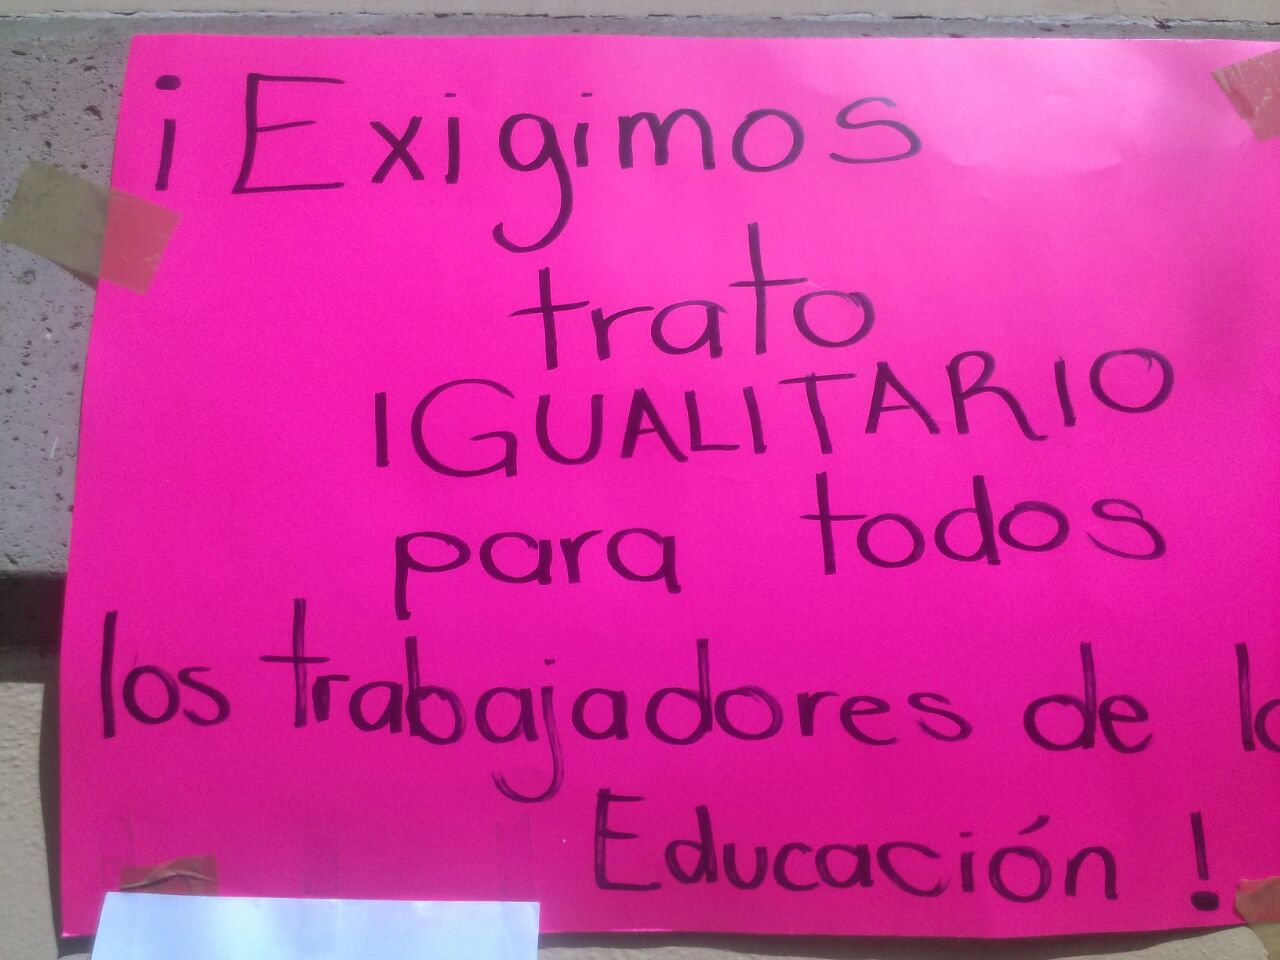 ¡Exigimos
trato
IGUALITARIO
para todos
los trabajadores de la
Educación!